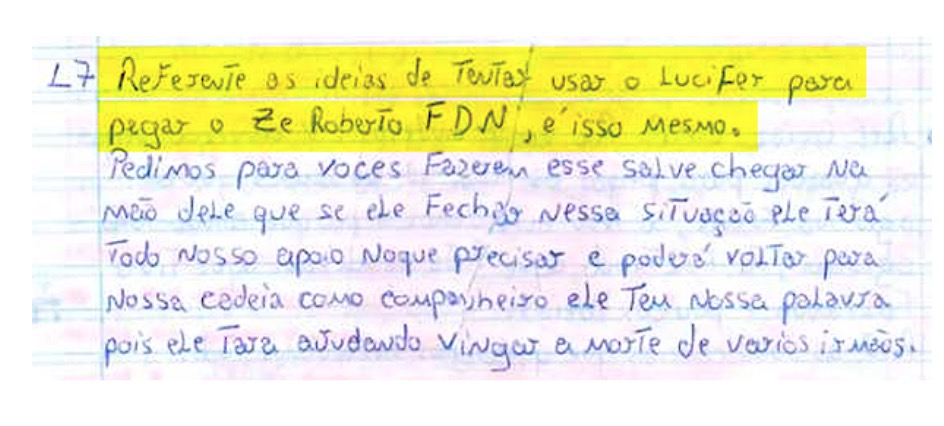 L7 Referente as ideias de Tentar usar o Lucifer para
pegar o Ze Roberto FDN, é isso mesmo.
Pedimos para voces Fazerem esse salve chegar na
meio dele que se ele Fechar nessa situação ele Terá
Todo nosso apoio noque precisar e poderá volTar para
nossa cadeia como companheiro ele Tem nossa palavra
pois ele Tara ajudando vingar a morTe de varios irmãos.